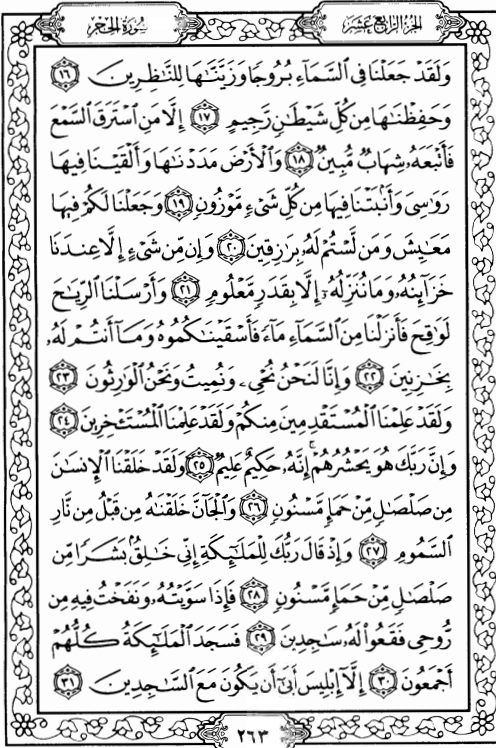 الجزء الرابع عشر
سورة الحجر
وَلَقَدْ جَعَلْنَا فِي السَّمَآءِ بُرُوجًا وَزَيَّنَّٰهَا لِلنَّٰظِرِينَ ١٦
وَحَفِظْنَٰهَا مِن كُلِّ شَيْطَٰنٍ رَّجِيمٍ ١٧ إِلَّا مَنِ ٱسْتَرَقَ ٱلسَّمْعَ
فَأَتْبَعَهُۥ شِهَابٌ مُّبِينٌ ١٨ وَٱلْأَرْضَ مَدَدْنَٰهَا وَأَلْقَيْنَا فِيهَا
رَوَٰسِىَ وَأَنۢبَتْنَا فِيهَا مِن كُلِّ شَىْءٍ مَّوْزُونٍ ١٩ وَجَعَلْنَا لَكُمْ فِيهَا
مَعَٰيِشَ وَمَن لَّسْتُمْ لَهُۥ بِرَٰزِقِينَ ٢٠ وَإِن مِّن شَىْءٍ إِلَّا عِندَنَا
خَزَآئِنُهُۥ وَمَا نُنَزِّلُهُۥٓ إِلَّا بِقَدَرٍ مَّعْلُومٍ ٢١ وَأَرْسَلْنَا ٱلرِّيَٰحَ
لَوَٰقِحَ فَأَنزَلْنَا مِنَ ٱلسَّمَآءِ مَآءً فَأَسْقَيْنَٰكُمُوهُ وَمَآ أَنتُمْ لَهُۥ
بِخَٰزِنِينَ ٢٢ وَإِنَّا لَنَحْنُ نُحْىِۦ وَنُمِيتُ وَنَحْنُ ٱلْوَٰرِثُونَ ٢٣
وَلَقَدْ عَلِمْنَا ٱلْمُسْتَقْدِمِينَ مِنكُمْ وَلَقَدْ عَلِمْنَا ٱلْمُسْتَـْٔخِرِينَ ٢٤
وَإِنَّ رَبَّكَ هُوَ يَحْشُرُهُمْ ۚ إِنَّهُۥ حَكِيمٌ عَلِيمٌ ٢٥ وَلَقَدْ خَلَقْنَا ٱلْإِنسَٰنَ
مِن صَلْصَٰلٍ مِّنْ حَمَإٍ مَّسْنُونٍ ٢٦ وَٱلْجَآنَّ خَلَقْنَٰهُ مِن قَبْلُ مِن نَّارِ
ٱلسَّمُومِ ٢٧ وَإِذْ قَالَ رَبُّكَ لِلْمَلَٰٓئِكَةِ إِنِّى خَٰلِقٌۢ بَشَرًا مِّن
صَلْصَٰلٍ مِّنْ حَمَإٍ مَّسْنُونٍ ٢٨ فَإِذَا سَوَّيْتُهُۥ وَنَفَخْتُ فِيهِ مِن
رُّوحِى فَقَعُوا۟ لَهُۥ سَٰجِدِينَ ٢٩ فَسَجَدَ ٱلْمَلَٰٓئِكَةُ كُلُّهُمْ
أَجْمَعُونَ ٣٠ إِلَّآ إِبْلِيسَ أَبَىٰٓ أَن يَكُونَ مَعَ ٱلسَّٰجِدِينَ ٣١
٢٦٣